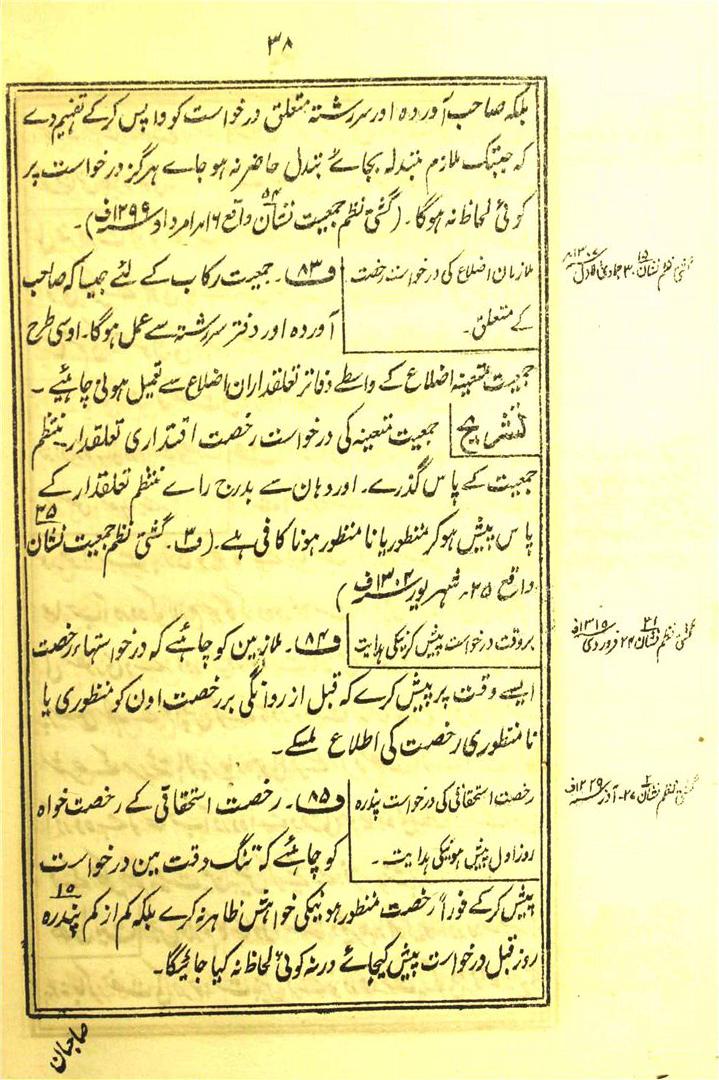 ۳۸
بلکہ صاحب آوردہ اور سررشتہ متعلق درخواست کو واپس کرکے تفہیم دے
کہ جبتک ملازم متبدلہ بجائے تبدل حاضر نہ ہو جاے ہرگز درخواست پر
کوئی لحاظ نہ ہوگا۔ (گشتی نظم جمعیت نشان ۵۴ واقع ۱۶ امرداد ۱۲۹۹ف)۔
ملازمان اضلاع کی درخواست رخصت
کے متعلق۔
ف۸۳۔ جمعیت رکاب کے لئے جیسا کہ صاحب
آوردہ اور دفتر سررشتہ سے عمل ہوگا۔ اوسی طرح
جمعیت متعینہ اضلاع کے واسطے دفاتر تعلقداران اضلاع سے تعمیل ہونی چاہئیے۔
تشریح
جمعیت متعینہ کی درخواست رخصت اقتداری تعلقدار۔ منتظم
جمعیت کے پاس گذرے۔ اور وہان سے بدرج راے منتظم تعلقدار کے
پاس پیش ہوکر منظور یا نامنظور ہونا کافی ہے۔ (ف۳۔ گشتی نظم جمعیت نشان ۳۵
واقع ۲۵۔ شہریور ۱۳۰۲ف)
بروقت درخواست پیش کرنیکی ہدایت
ف۸۴۔ ملازمین کو چاہئے کہ درخواستہاء رخصت
ایسے وقت پر پیش کرے کہ قبل از روانگی بر رخصت اون کو منظوری یا
نامنظوری رخصت کی اطلاع ملسکے۔
رخصت استحقاقی کی درخواست پندرہ
روز اول پیش ہونیکی ہدایت۔
ف۸۵۔ رخصت استحقاقی کے رخصت خواہ
کو چاہئے کہ تنگ وقت مین درخواست
پیش کرکے فوراً رخصت منظور ہونیکی خواہش ظاہر نہ کرے بلکہ کم از کم پندرہ ۱۵
روز قبل درخواست پیش کیجائے ورنہ کوئی لحاظ نہ کیا جائیگا۔
گشتی نظم نشان ۱۵ ۳۰ جمادی الاول ۱۳۰۷ھ
گشتی نظم نشان ۲۱ ۲۴ فروردی ۱۳۱۵ف
گشتی نظم نشان ۲۷۔ آذر
صاحبان